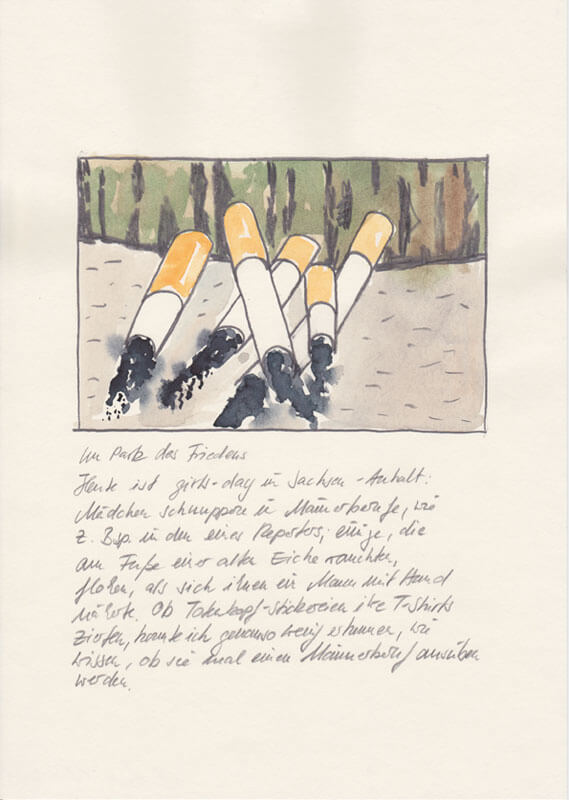 Im Park des Friedens
Heute ist girls-day in Sachsen-Anhalt:
Mädchen schnuppern in Männerberufe, wie
z. Bsp. in den eines Reporters; einige, die
am Fuße einer alten Eiche rauchten,
flohen, als sich ihnen ein Mann mit Hund
näherte. Ob Totenkopf-Stickereien ihre T-Shirts
zierten, konnte ich genauso wenig erkennen, wie
wissen, ob sie mal einen Männerberuf ausüben
werden.